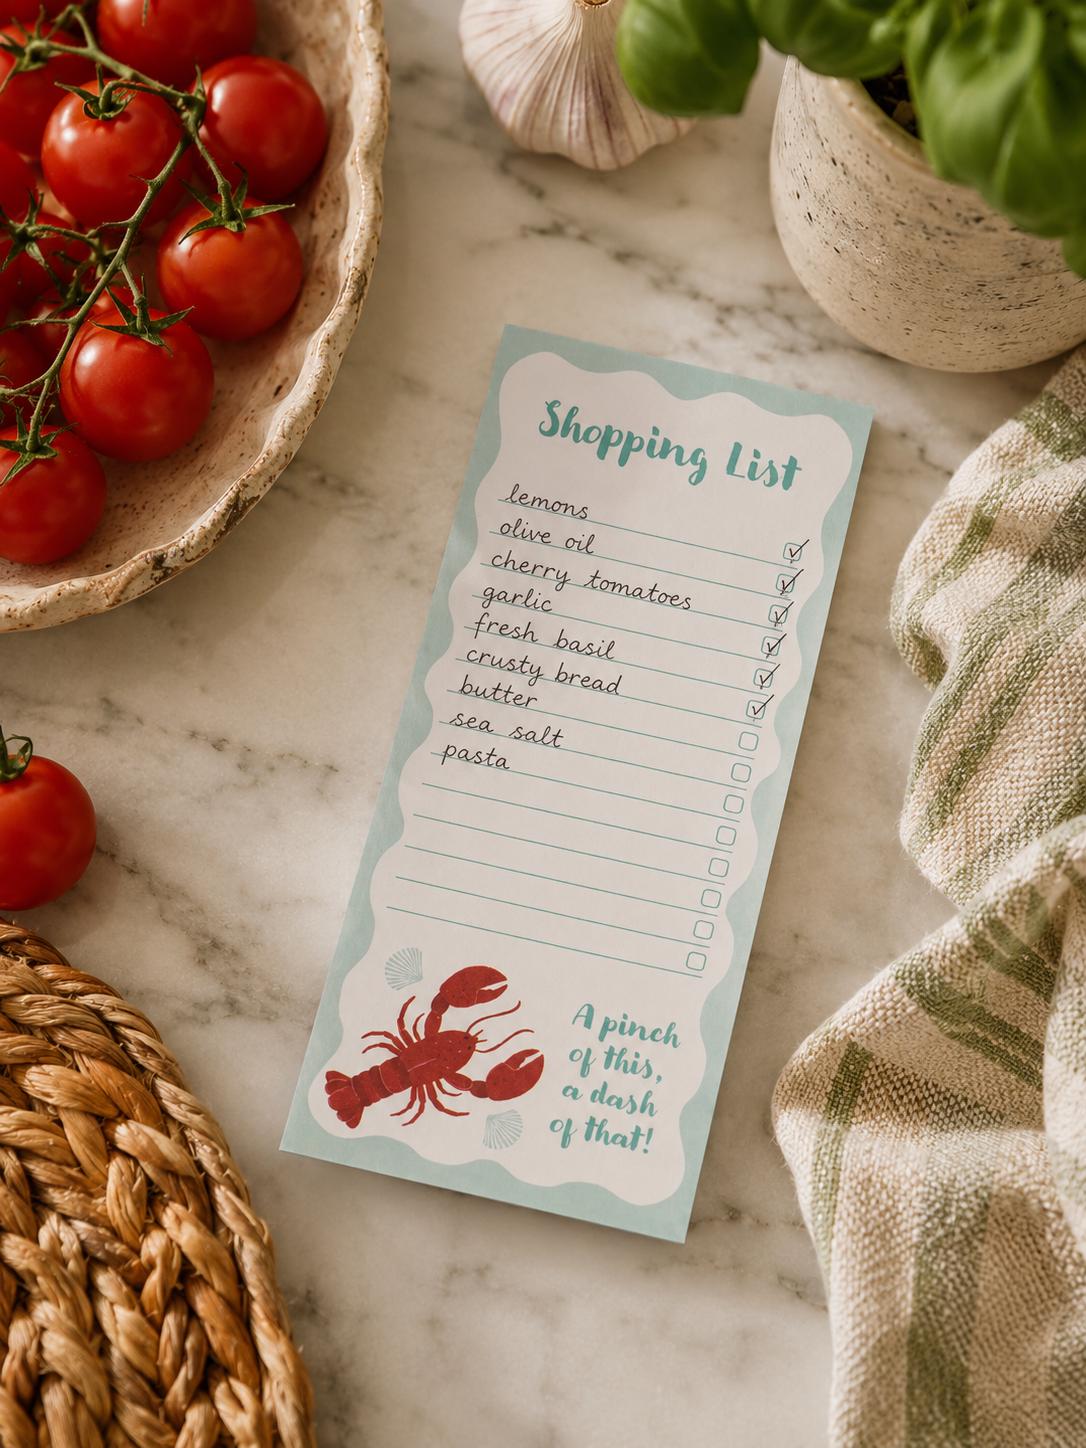 Shopping List
lemons
olive oil
cherry tomatoes
garlic
fresh basil
crusty bread
butter
sea salt
pasta
A pinch
of this,
a dash
of that!